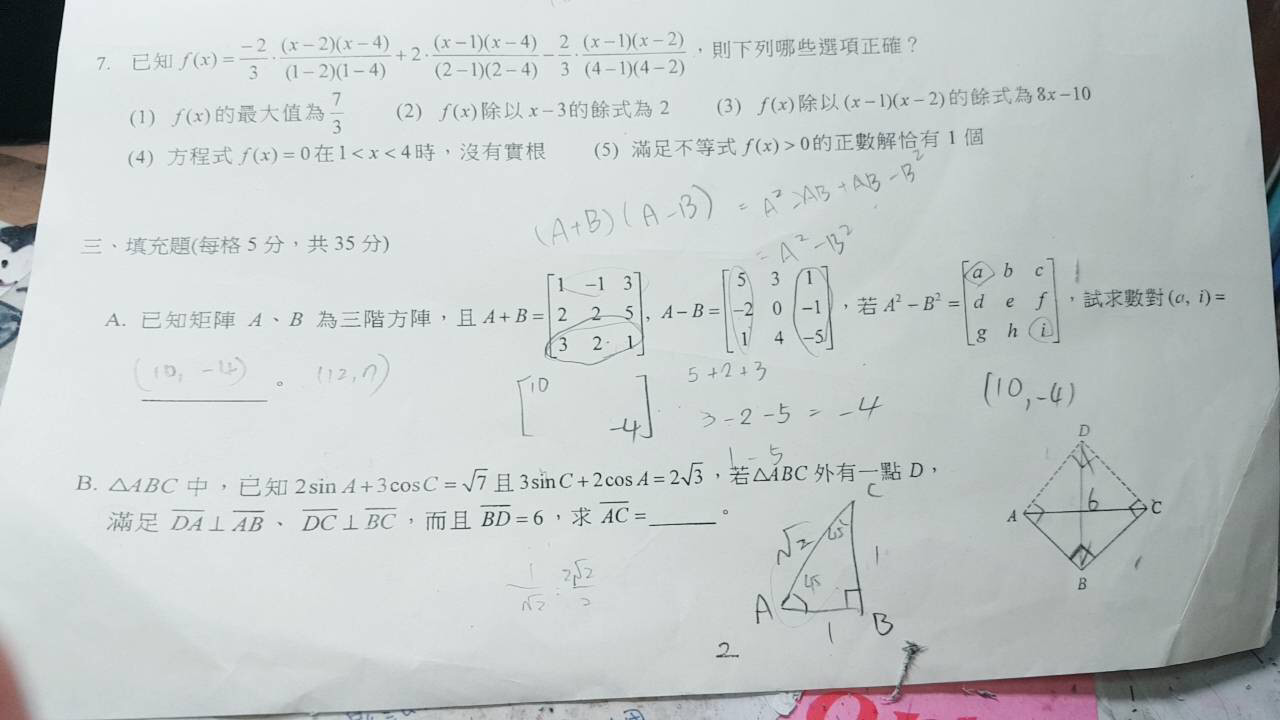 7. 已知 f(x) = \frac{-2}{3} \cdot \frac{(x-2)(x-4)}{(1-2)(1-4)} + 2 \cdot \frac{(x-1)(x-4)}{(2-1)(2-4)} - \frac{2}{3} \cdot \frac{(x-1)(x-2)}{(4-1)(4-2)}，則下列哪些選項正確？
(1) f(x)的最大值為\frac{7}{3} (2) f(x)除以 x-3的餘式為 2 (3) f(x)除以 (x-1)(x-2)的餘式為8x-10
(4) 方程式 f(x)=0在1<x<4時，沒有實根 (5) 滿足不等式 f(x)>0的正數解恰有 1 個
(A+B)(A-B) = A² - AB + AB - B²
= A² - B²
三、填充題(每格 5 分，共 35 分)
A. 已知矩陣 A、B 為三階方陣，且 A+B = \begin{bmatrix} 1 & -1 & 3 \\ 2 & 2 & 5 \\ 3 & 2 & 1 \end{bmatrix}, A-B = \begin{bmatrix} 5 & 3 & 1 \\ -2 & 0 & -1 \\ 1 & 4 & -5 \end{bmatrix}，若 A²-B² = \begin{bmatrix} a & b & c \\ d & e & f \\ g & h & i \end{bmatrix}，試求數對(a, i)=
(10, -4) 。 (12, 7)
[10 -4] 5+2+3
3-2-5 = -4 (10, -4)
1-5
B. △ABC 中，已知 2sin A+3cos C = √7 且 3sin C+2cos A = 2√3，若△ABC 外有一點 D，
滿足 \overline{DA} ⊥ \overline{AB}、\overline{DC} ⊥ \overline{BC}，而且 \overline{BD} = 6，求 \overline{AC} = ______。
D
A 6 C
B
C
√2 45 1
45
A 1 B
\frac{1}{√2} : \frac{2√2}{2}
2